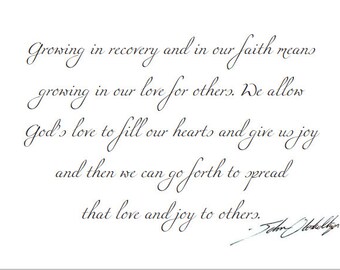 Growing in recovery and in our faith means
growing in our love for others. We allow
God's love to fill our hearts and give us joy
and then we can go forth to spread
that love and joy to others.
-John